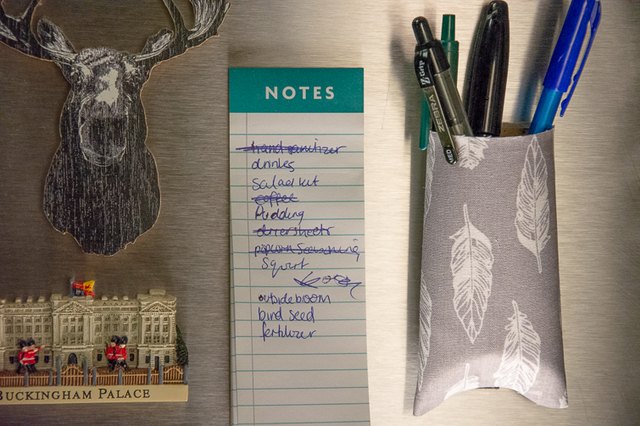 NOTES
hand sanitizer
drinks
salad kit
coffee
Pudding
dryer sheets
popcorn seasoning
Squirt
outside broom
bird seed
fertilizer
BUCKINGHAM PALACE
Z-Grip
ZEBRA